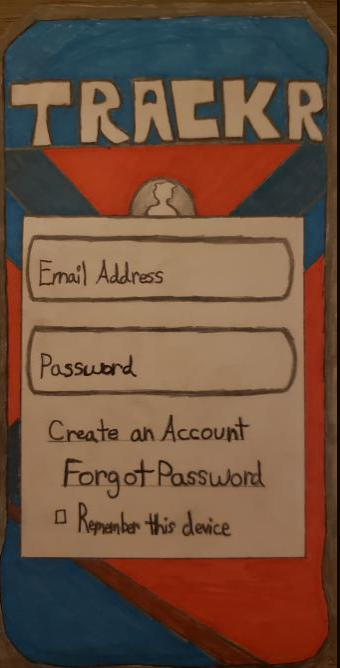 TRACKR
Email Address
Password
Create an Account
Forgot Password
Remember this device